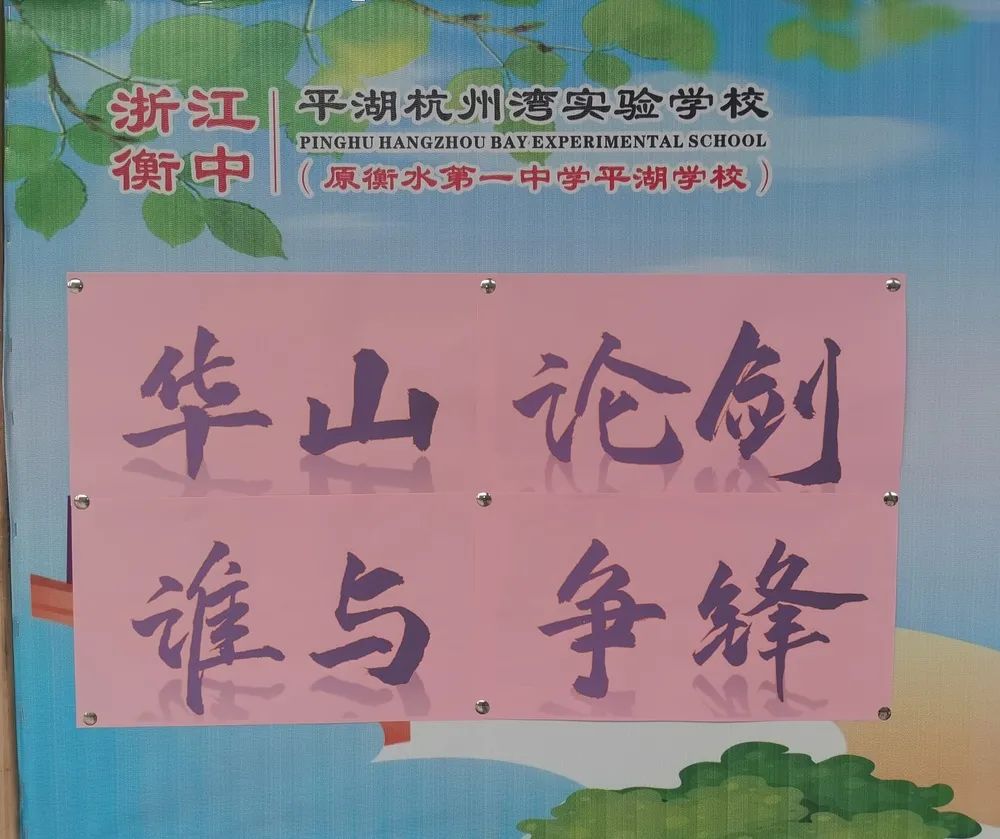 浙江
衡中
平湖杭州湾实验学校
PINGHU HANGZHOU BAY EXPERIMENTAL SCHOOL
（原衡水第一中学平湖学校）
华山论剑
谁与争锋